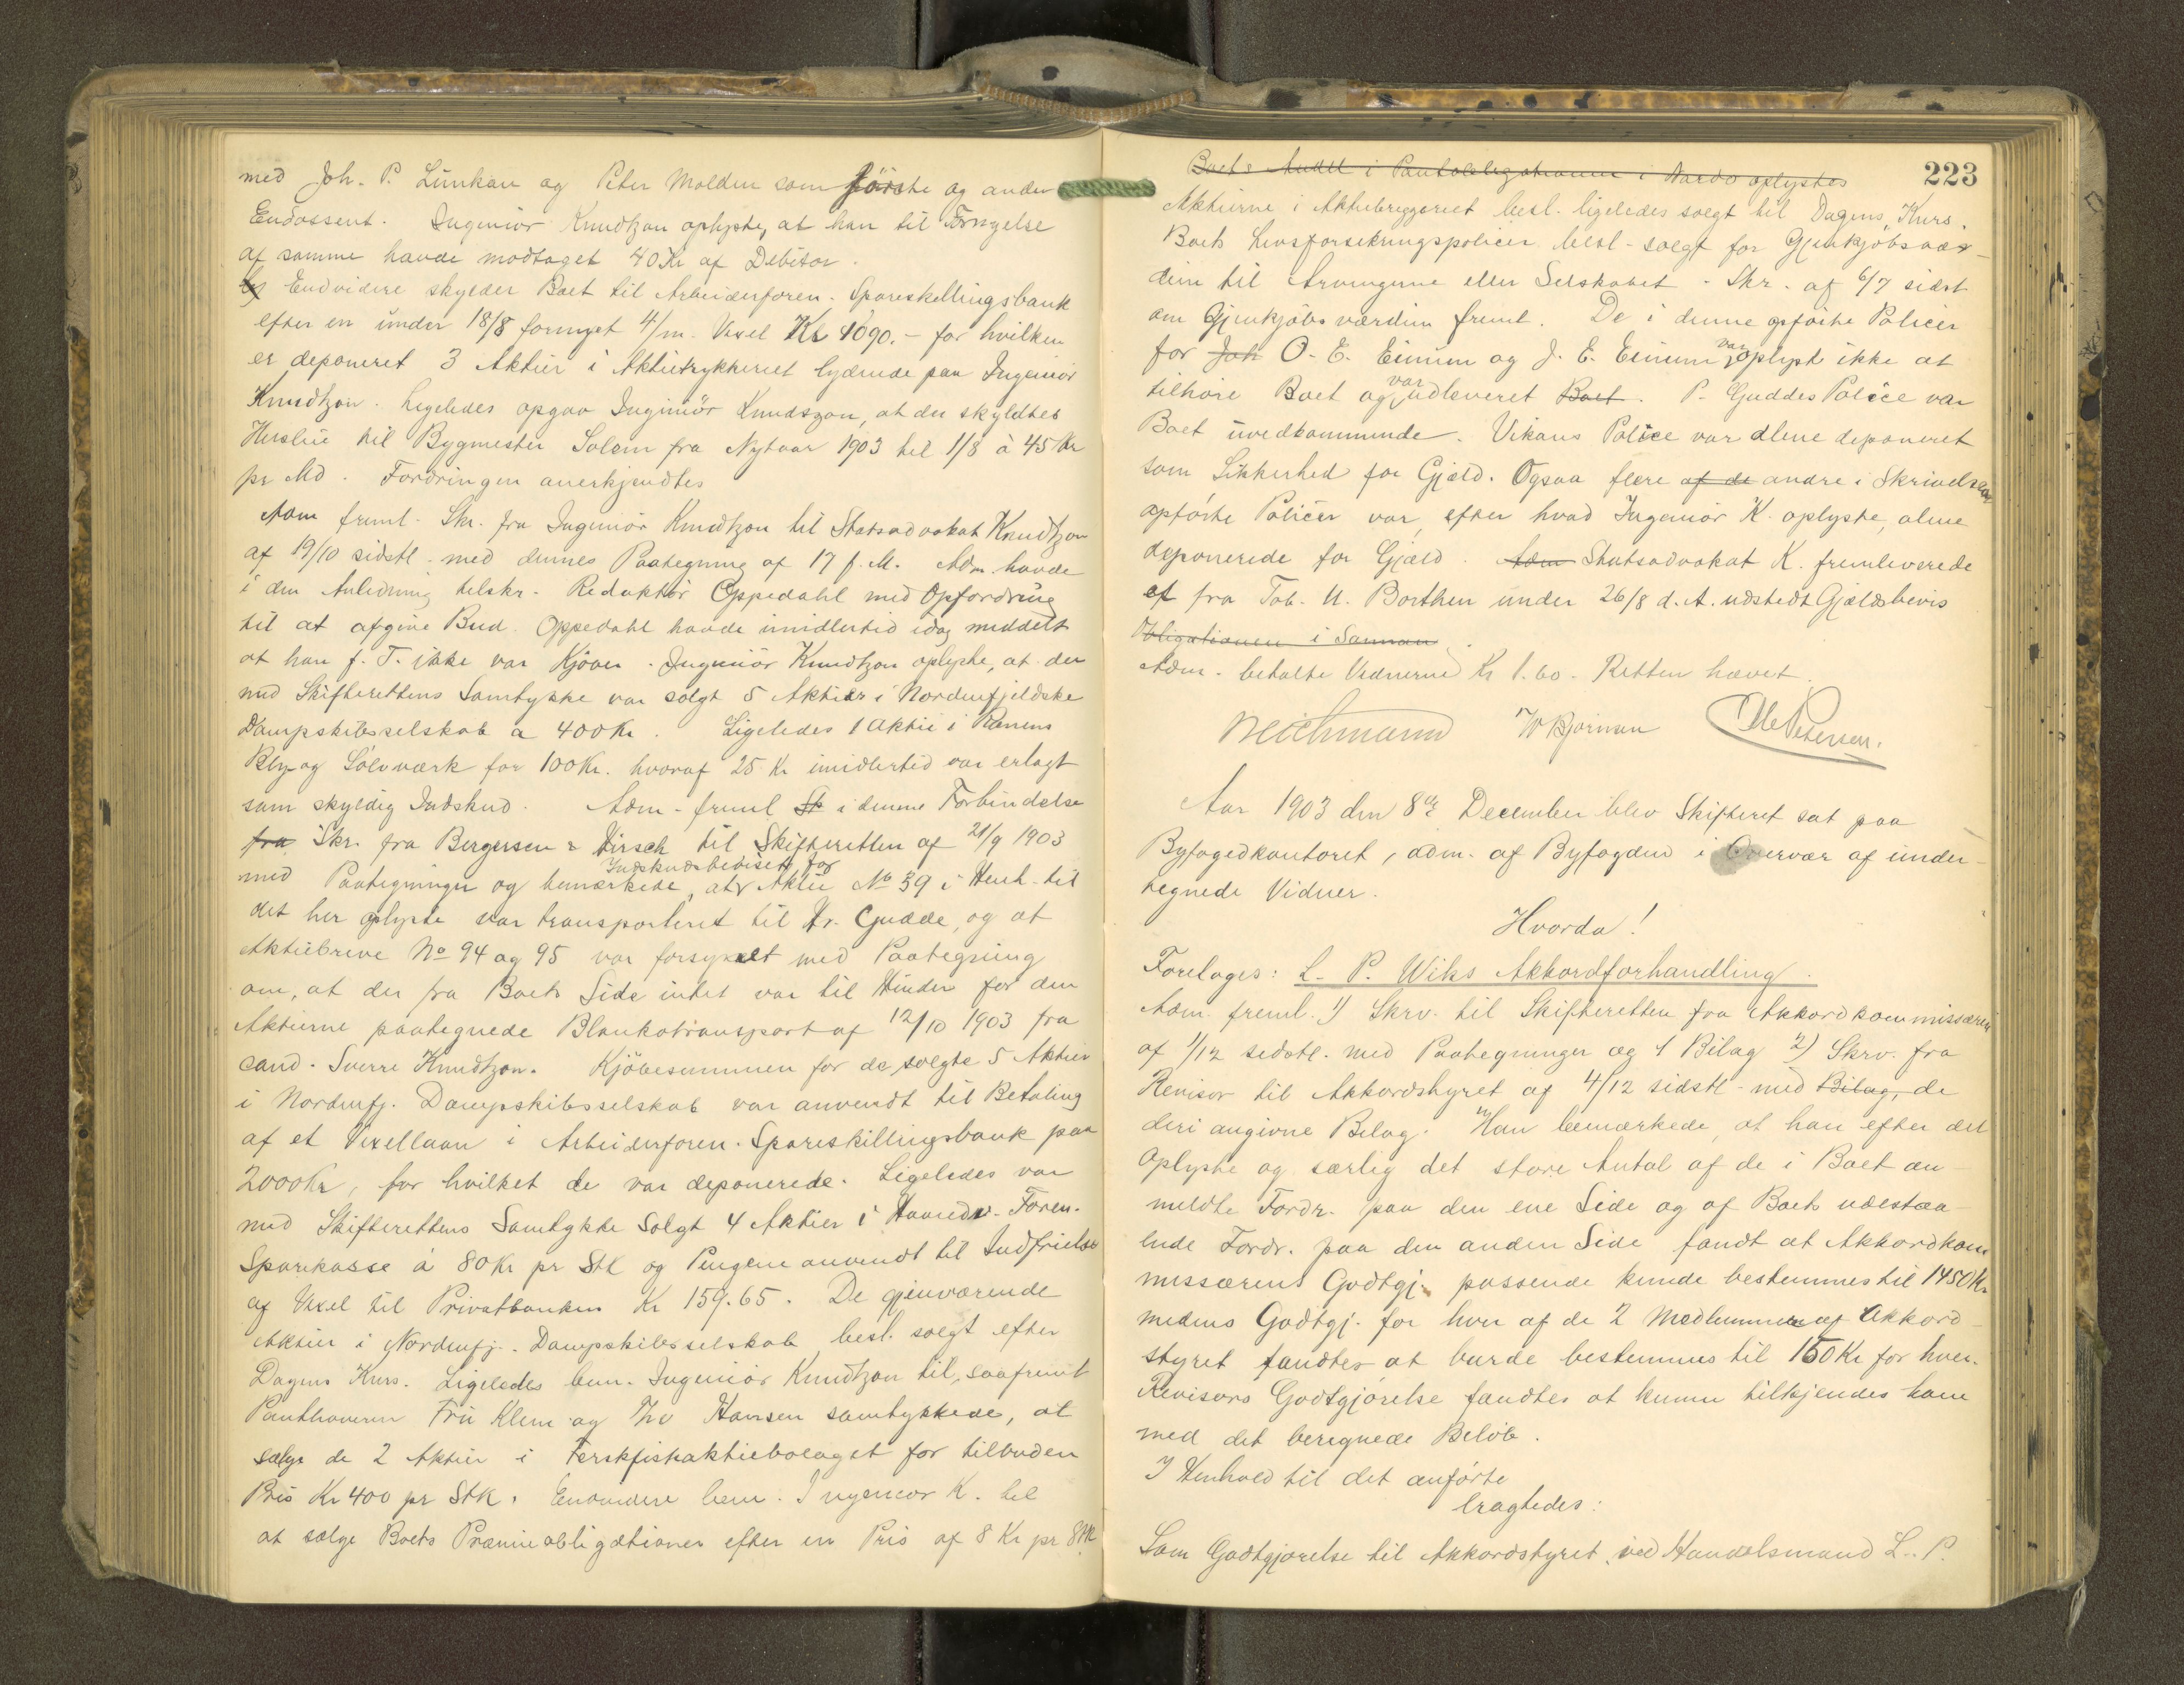 med Joh. P. Lunkan og Peter Molden som første og anden
Endossent. Ingeniør Knudtzon oplyste, at han til Fornyelse
af samme havde modtaget 40 Kr af Debitor.
Endvidere skylder Boet til Arbeiderforen. Spareskillingsbank
efter en under 18/8 fornyet 4/m. Vexel Kr 1090.- for hvilken
er deponeret 3 Aktier i Aktietrykkeriet lydende paa Ingeniør
Knudtzon. Ligeledes opgav Ingeniør Knudszon, at der skyldtes
Husleie til Bygmester Solem fra Nytaar 1903 til 1/8 à 45 Kr
pr Md. Fordringen anerkjendtes
Adm freml. Skr. fra Ingeniør Knudtzon til Statsadvokat Knudtzon
af 19/10 sidstl. med dennes Paategning af 17 f. M. Adm. havde
i den Anledning tilskr. Redaktør Oppedahl med Opfordring
til at afgive Bud. Oppedahl havde imidlertid idag meddelt
at han f. T. ikke var Kjøber. Ingeniør Knudtzon oplyste, at der
med Skifterettens Samtykke var solgt 5 Aktier i Nordenfjeldske
Dampskibsselskab a 400 Kr. Ligeledes 1 Aktie i Ranens
Bly og Sølvværk for 100 Kr. hvoraf 25 Kr imidlertid var erlagt
som skyldig Indskud. Adm. freml Sk i denne Forbindelse
fra Skr. fra Bergersen & Hirsch til Skifteretten af 21/9 1903
Indskudsbeviset for
med Paategninger og bemærkede, at Aktie No 39 i Henh. til
det her oplyste var transporteret til Hr. Gudde, og at
Aktiebreve No 94 og 95 var forsynet med Paategning
om, at der fra Boets Side intet var til Hinder for den
Aktierne paategnede Blankotransport af 12/10 1903 fra
cand. Sverre Knudtzon. Kjøbesummen for de solgte 5 Aktier
i Nordenfj. Dampskibsselskab var anvendt til Betaling
af et Vexellaan i Arbeiderforen. Spareskillingsbank paa
2000 Kr, for hvilket de var deponerede. Ligeledes var
med Skifterettens Samtykke Solgt 4 Aktier i Haandv. Foren.
Sparekasse á 80 Kr pr Stk og Pengene anvendt til Indfrielse
af Vexel til Privatbanken Kr 159.65. De gjenværende
Aktier i Nordenfj. Dampskibsselskab besl. solgt efter
Dagens Kurs. Ligeledes bem. Ingeniør Knudtzon til, saafremt
Panthaverne Fru Klem og Hansen samtykkede, at
sælge de 2 Aktier i Ferskfiskaktiebolaget for tilbuden
Pris Kr 400 pr Stk. Endvidere bem. Ingeniør K. til
at sælge Boets Præmieobligationer efter en Pris af 8 Kr pr Stk
223
Boets Andel i Pantobligationen i Nardo oplystes
Aktierne i Aktiebryggeriet besl. ligeledes solgt til Dagens Kurs.
Boets Livsforsikringspolicer besl. solgt for Gjenkjøbsvær-
dien til Arvingerne eller Selskabet. Skr. af 6/7 sidst
om Gjenkjøbsværdien freml. De i denne opførte Policer
for Joh O. E. Einum og J. E. Einum var oplyst ikke at
tilhøre Boet og var udleveret Boet. P. Guddes Police var
Boet uvedkommende. Vikans Police var alene deponeret
som Sikkerhed for Gjæld. Ogsaa flere af de andre i Skrivelsen
opførte Policer var, efter hvad Ingeniør K. oplyste, alene
deponerede for Gjæld. Adm Statsadvokat K. fremleverede
et fra Tob. U. Borthen under 26/8 d. A. udstedt Gjældsbevis
Obligationen i
Adm. betalte Vidnerne Kr 1.60. Retten hævet.
W Bjørnsen Ole Petersen.
Aar 1903 den 8de December blev Skifteret sat paa
Byfogedkontoret, adm. af Byfogden i Overvær af under-
tegnede Vidner.
Hvorda!
Foretoges: L. P. Wiks Akkordforhandling.
Adm. freml. 1) Skrv. til Skifteretten fra Akkordkommissæren
af 1/12 sidstl. med Paategninger og 1 Bilag 2) Skrv. fra
Revisor til Akkordstyret af 4/12 sidstl. med Bilag, de
deri angivne Bilag. Han bemærkede, at han efter det
Oplyste og særlig det store Antal af de i Boet an-
meldte Fordr. paa den ene Side og af Boets udestaa-
ende Fordr. paa den anden Side fandt at Akkordkom
missærens Godtgj. passende kunde bestemmes til 1450 Kr
medens Godtgj. for hver af de 2 Medlemmer af Akkord-
styret fandtes at burde bestemmes til 150 Kr for hver.
Revisors Godtgjørelse fandtes at kunne tilkjendes ham
med det beregnede Beløb.
I Henhold til det anførte
bragtedes:
Som Godtgjørelse til Akkordstyret ved Handelsmand L. P.